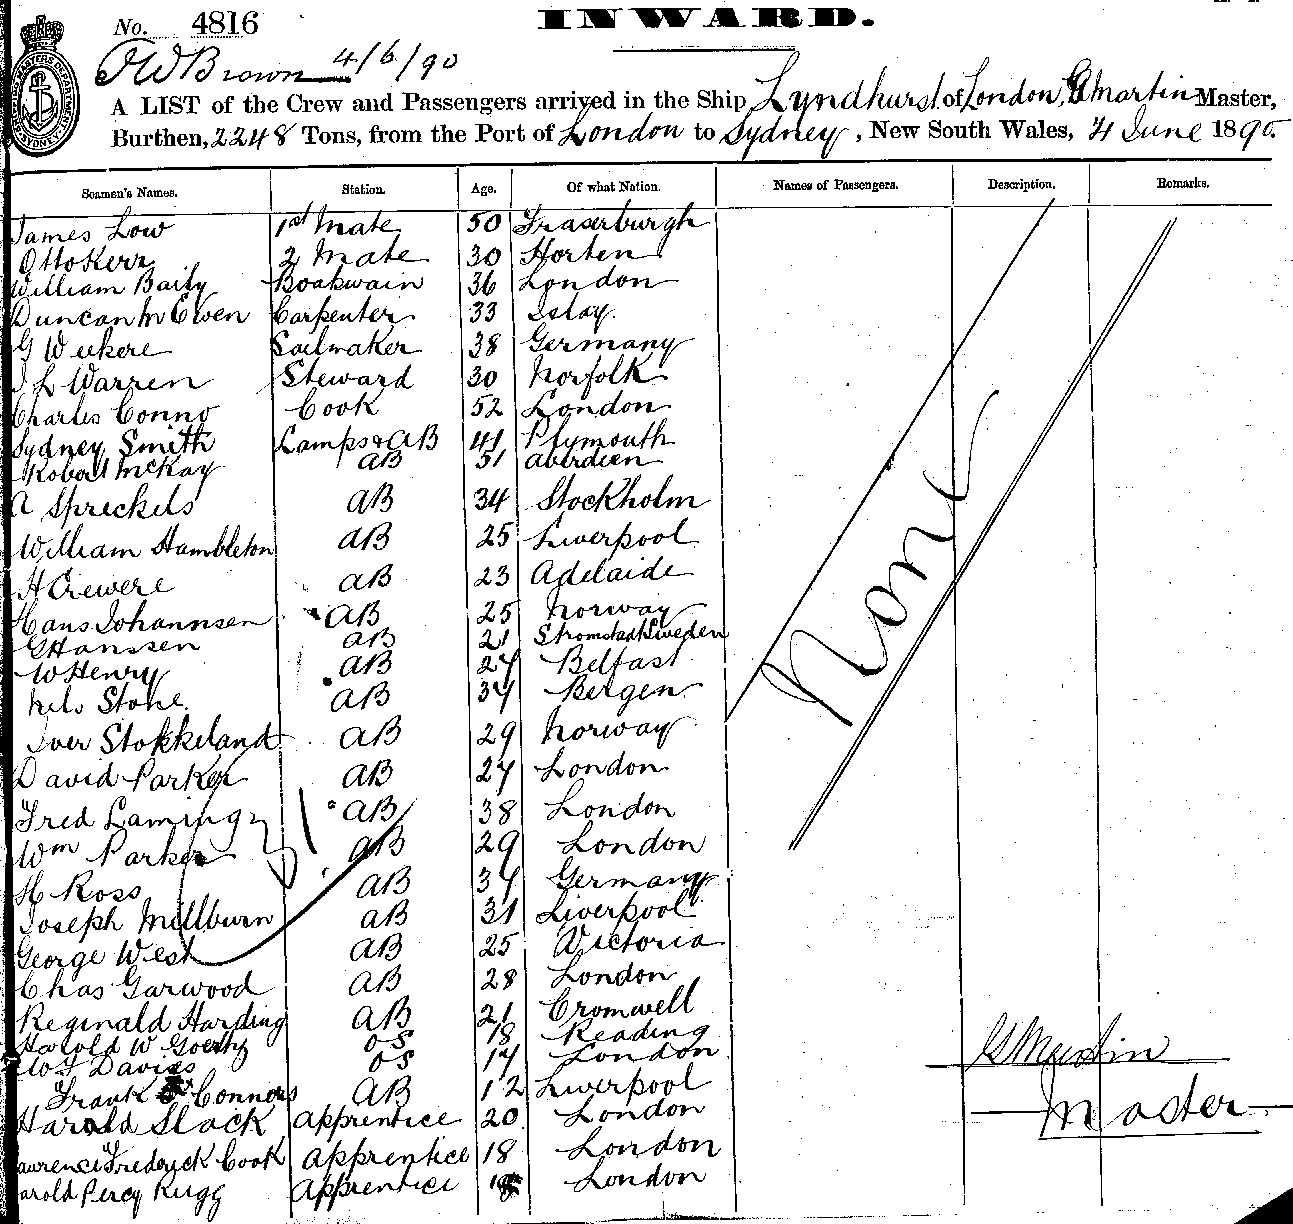 No. 4816
INWARD.
J W Brown 4/6/90
A LIST of the Crew and Passengers arrived in the Ship Lyndhurst of London, G Martin Master,
Burthen, 2248 Tons, from the Port of London to Sydney, New South Wales, 4 June 1890.
Seamen's Names. Station. Age. Of what Nation. Names of Passengers. Description. Remarks.
James Low 1st Mate 50 Fraserburgh
Otto Kerr 2 Mate 30 Horten
William Baily Boatswain 36 London
Duncan McEwen Carpenter 33 Islay.
G Weekere Sailmaker 38 Germany
J L Warren Steward 30 Norfolk
Charles Conno Cook 52 London
Sydney Smith Lamps & AB 41 Plymouth
Robert McKay AB 51 Aberdeen
A Spreckels AB 34 Stockholm
William Hambleton AB 25 Liverpool
H Crewere AB 23 Adelaide
Hans Johannsen AB 25 Norway
G Hanssen AB 21 Stromstad Sweden
W Henry AB 27 Belfast
Nels Stone. AB 37 Bergen
Iver Stokkeland AB 29 Norway
David Parker AB 27 London
Fred Laming AB 38 London
Wm Parker AB 29 London
H Ross AB 37 Germany
Joseph Millburn AB 31 Liverpool
George West AB 25 Victoria
Chas Garwood AB 28 London
Reginald Harding AB 21 Cromwell
Harold W OS 18 Reading
W J Davies OS 17 London
Frank Connors AB Liverpool
Harold Slack Apprentice 20 London
Laurence Frederick Cook Apprentice 18 London
Harold Percy Rugg Apprentice London
None
G Martin
Master